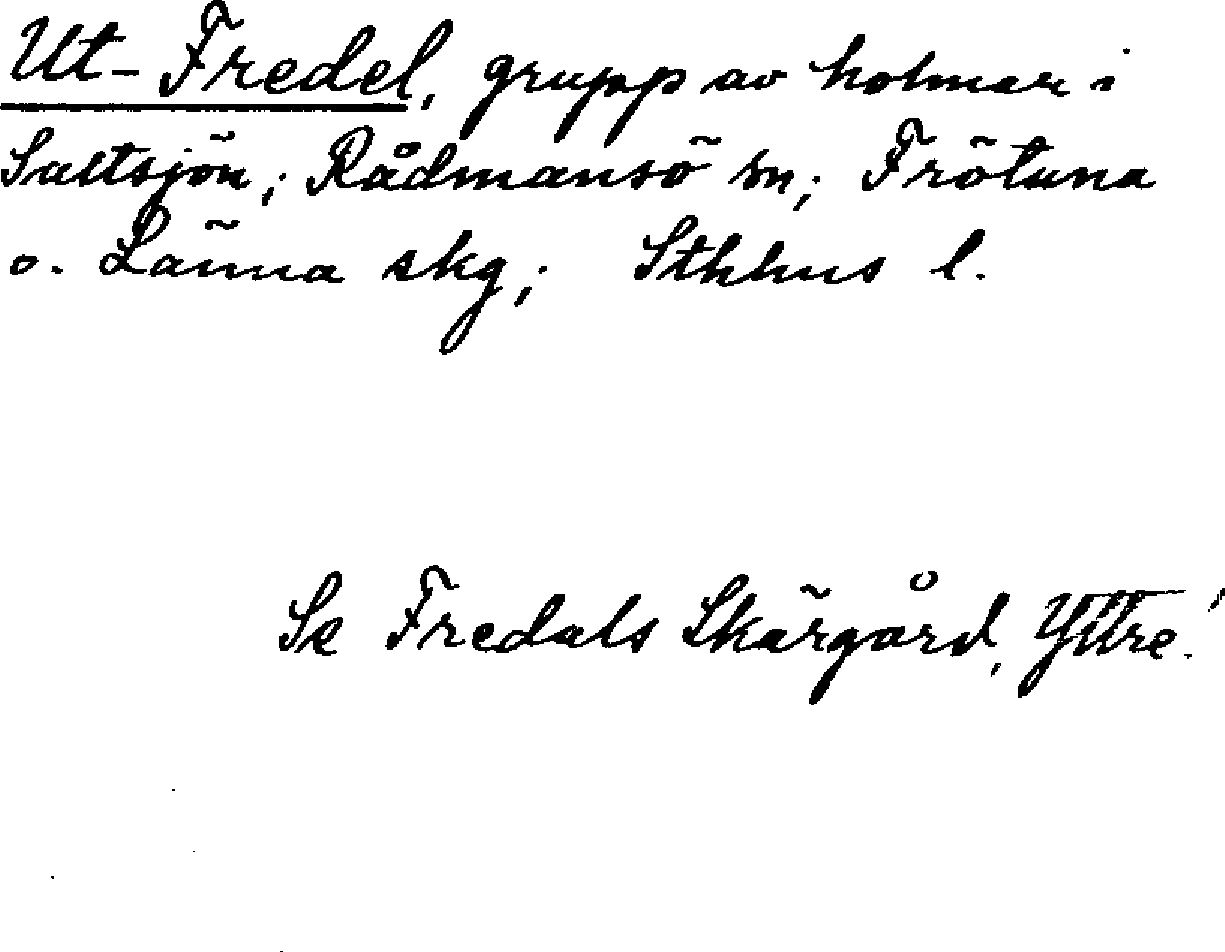 Ut-Fredel, grupp av holmar i
Saltsjön; Rådmansö sn; Frötuna
o. Länna skg; Sthlms l.
Se Fredals Skärgård, Yttre!